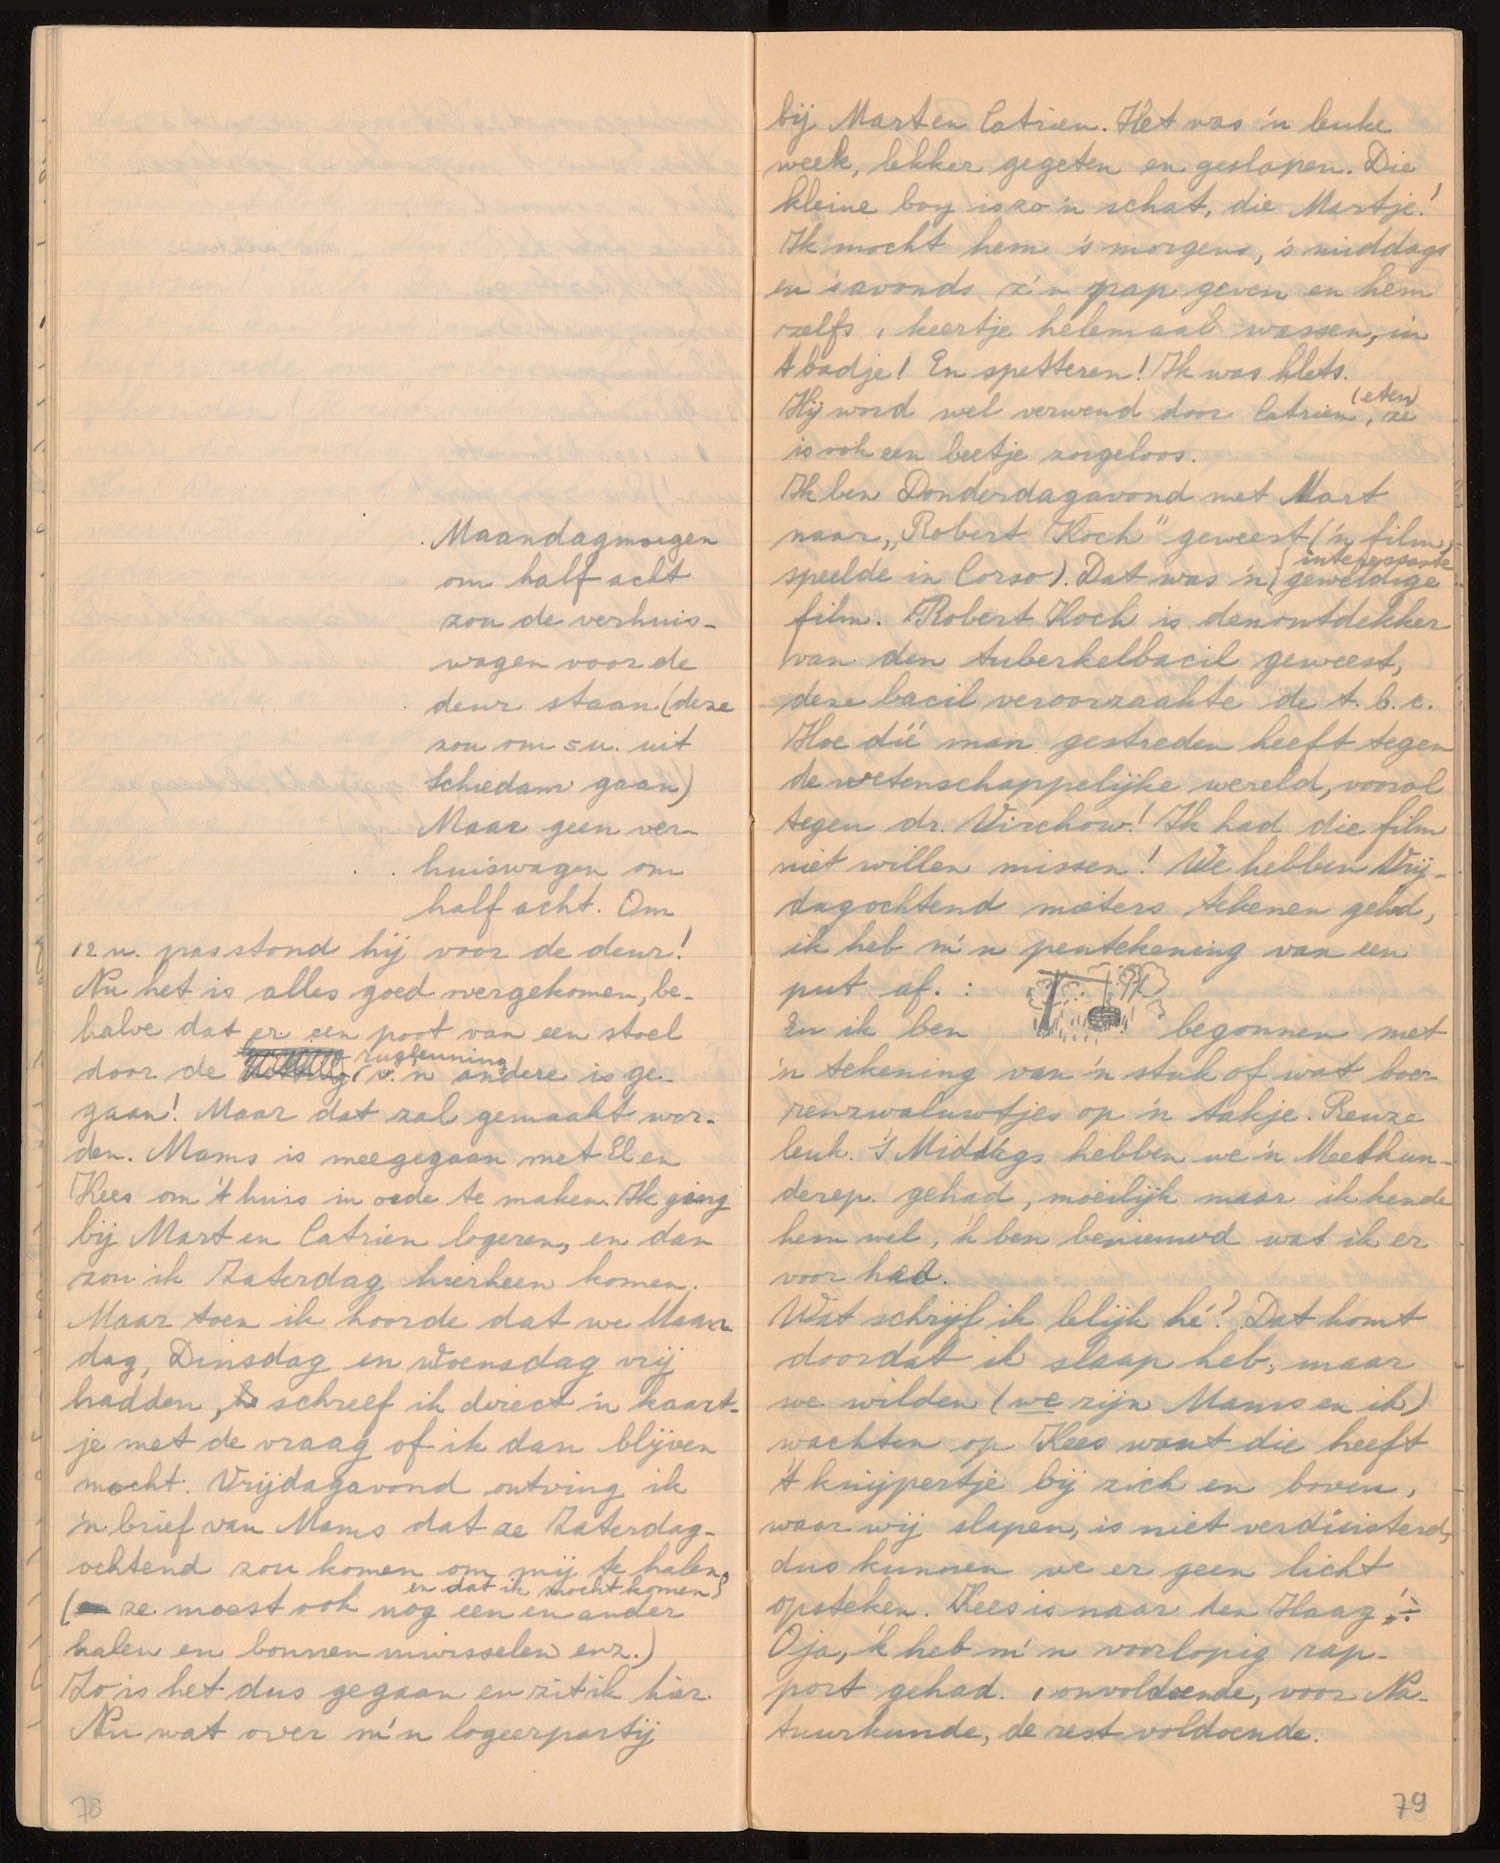 Maandagmorgen
om half acht
zou de verhuis-
wagen voor de
deur staan (deze
zou om 5 u. uit
Schiedam gaan)
Maar geen ver-
huiswagen om
half acht. Om
12 u. pas stond hij voor de deur!
Nu het is alles goed overgekomen, be-
halve dat er een poot van een stoel
rugleuning
door de v. 'n andere is ge-
gaan! Maar dat zal gemaakt wor-
den. Mams is meegegaan met El en
Kees om 't huis in orde te maken. Ik ging
bij Mart en Catrien logeren, en dan
zou ik Zaterdag hierheen komen.
Maar toen ik hoorde dat we Maan
dag, Dinsdag en Woensdag vrij
hadden, schreef ik direct 'n kaart-
je met de vraag of ik dan blijven
mocht. Vrijdagavond ontving ik
'n brief van Mams dat ze Zaterdag-
ochtend zou komen om mij te halen
en dat ik mocht komen
(ze moest ook nog een en ander
halen en bonnen inwisselen enz.)
Zo is het dus gegaan en zit ik hier.
Nu wat over m'n logeerpartij
78
bij Mart en Catrien. Het was 'n leuke
week, lekker gegeten en geslapen. Die
kleine boy is zo 'n schat, die Martje!
Ik mocht hem 's morgens, 's middags
en 's avonds z'n pap geven en hem
zelfs 1 keertje helemaal wassen, in
't badje! En spetteren! Ik was klets.
(eten)
Hij word wel verwend door Catrien, ze
is ook een beetje zorgeloos.
Ik ben Donderdagavond met Mart
naar „Robert Koch" geweest ('n film,
interessante
speelde in Corso). Dat was 'n geweldige
film. Robert Koch is den ontdekker
van den tuberkelbacil geweest,
deze bacil veroorzaakte de t.b.c.
Hoe díé man gestreden heeft tegen
de wetenschappelijke wereld, vooral
tegen dr. Virchow! Ik had die film
niet willen missen! We hebben Vrij-
dagochtend meters tekenen gehad,
ik heb m'n pentekening van een
put af. :
En ik ben begonnen met
'n tekening van 'n stuk of wat boe-
renzwaluwtjes op 'n takje. Reuze
leuk. 's Middags hebben we 'n Meetkun-
derep. gehad, moeilijk maar ik kende
hem wel, 'k ben benieuwd wat ik er
voor had.
Wat schrijf ik lelijk hé? Dat komt
doordat ik slaap heb, maar
we wilden (we zijn Mams en ik)
wachten op Kees want die heeft
't knijpertje bij zich en boven,
waar wij slapen, is niet verduisterd,
dus kunnen we er geen licht
opsteken. Kees is naar den Haag
O ja, 'k heb m'n voorlopig rap-
port gehad. 1 onvoldoende, voor Na-
tuurkunde, de rest voldoende.
79